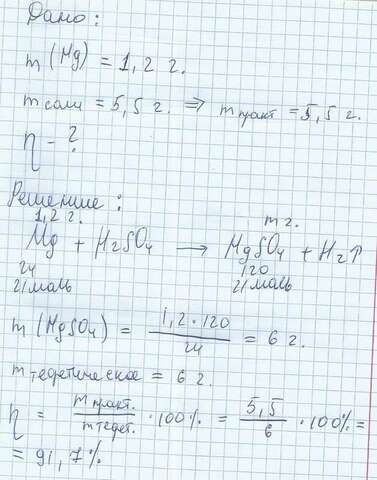 Дано:
m (Mg) = 1,2 г.
m соли = 5,5 г. ⇒ m практ = 5,5 г.
η - ?
Решение:
1,2 г. m г.
Mg + H₂SO₄ → MgSO₄ + H₂↑
24 120
г/моль г/моль
m (MgSO₄) = 1,2 · 120 / 24 = 6 г.
m теоретическое = 6 г.
η = m практ. / m теорет. · 100% = 5,5 / 6 · 100% =
= 91,7%